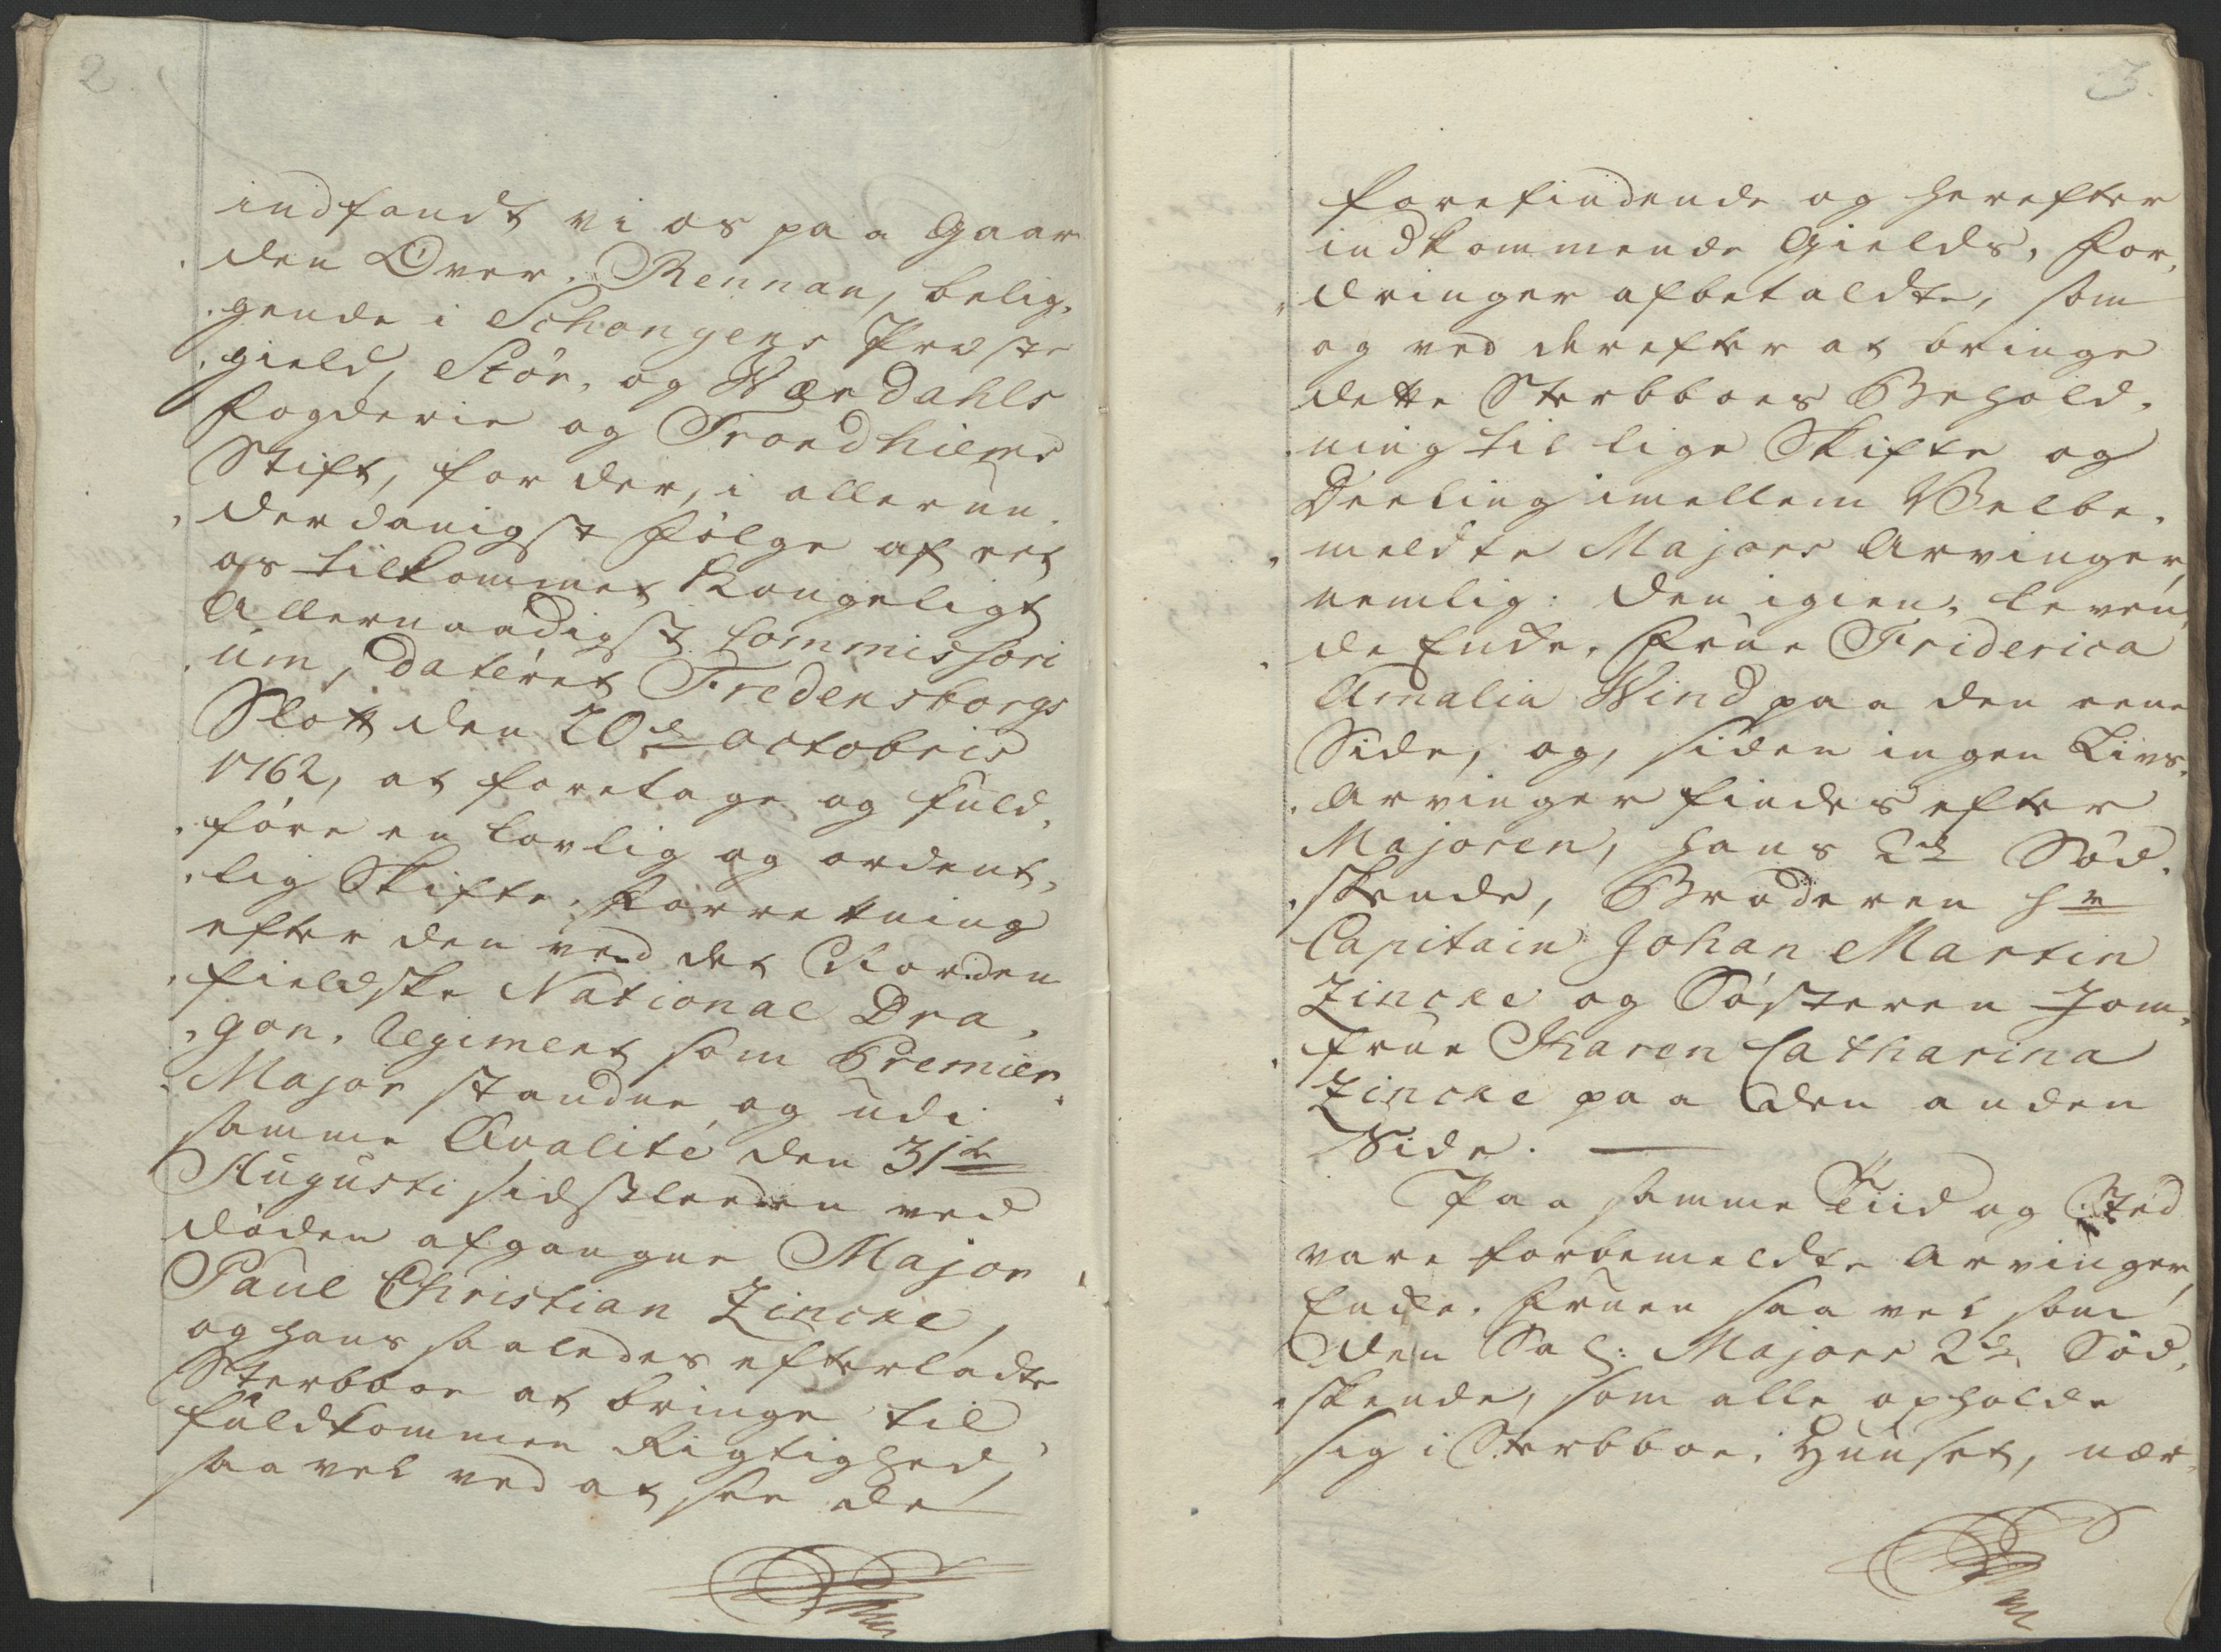 2.
indfandt vi os paa Gaar
den Over-Rennan, belig-
gende i Schongens Præste
gield, Stör- og Wærdahls
Fogderie og Trondhiems
Stift, for der, i allerun-
derdanigst Fölge af eet
os tilkommet Kongeligt
Allernaadigst Commissori
um, dateret Fredensborgs
Slott den 20de octobris
1762, at foretage og fuld-
före en lovlig og ordent-
lig Skifte-Forretning
efter den ved det Norden
fieldske National Dra-
gon-Regiment som Premier-
Major standne og udi
samme Qvalité den 31te
Augusti sidstleeden ved
döden afgangne Major
Paul Christian Zincke,
og hans saaledes efterladte
Sterbboe at bringe til
fuldkommen Rigtighed,
saa vel ved at see de
3.
forefindende og herefter
indkommende Gields-For-
dringer afbetaldte, som
og ved derefter at bringe
dette Sterbboes Behold-
ning til lige Skifte og
Deeling imellem Velbe-
meldte Majors Arvinger,
nemlig: den igien-leven-
de Enke-Frue Friderica
Amalia Wind paa den eene
Side, og, siden ingen Livs-
Arvinger findes efter
Majoren, hans 2de Söd-
skende, Broderen Hr
Capitain Johan Martin
Zincke og Sösteren Jom-
frue Karen Catharina
Zincke paa den anden
Side. —
Paa samme Tiid og Sted
vare forbemeldte Arvinger,
Enke-Fruen saa vel som
den Sal: Majors 2de Söd-
skende, som alle opholde
sig i Sterbboe-Huuset, nær-